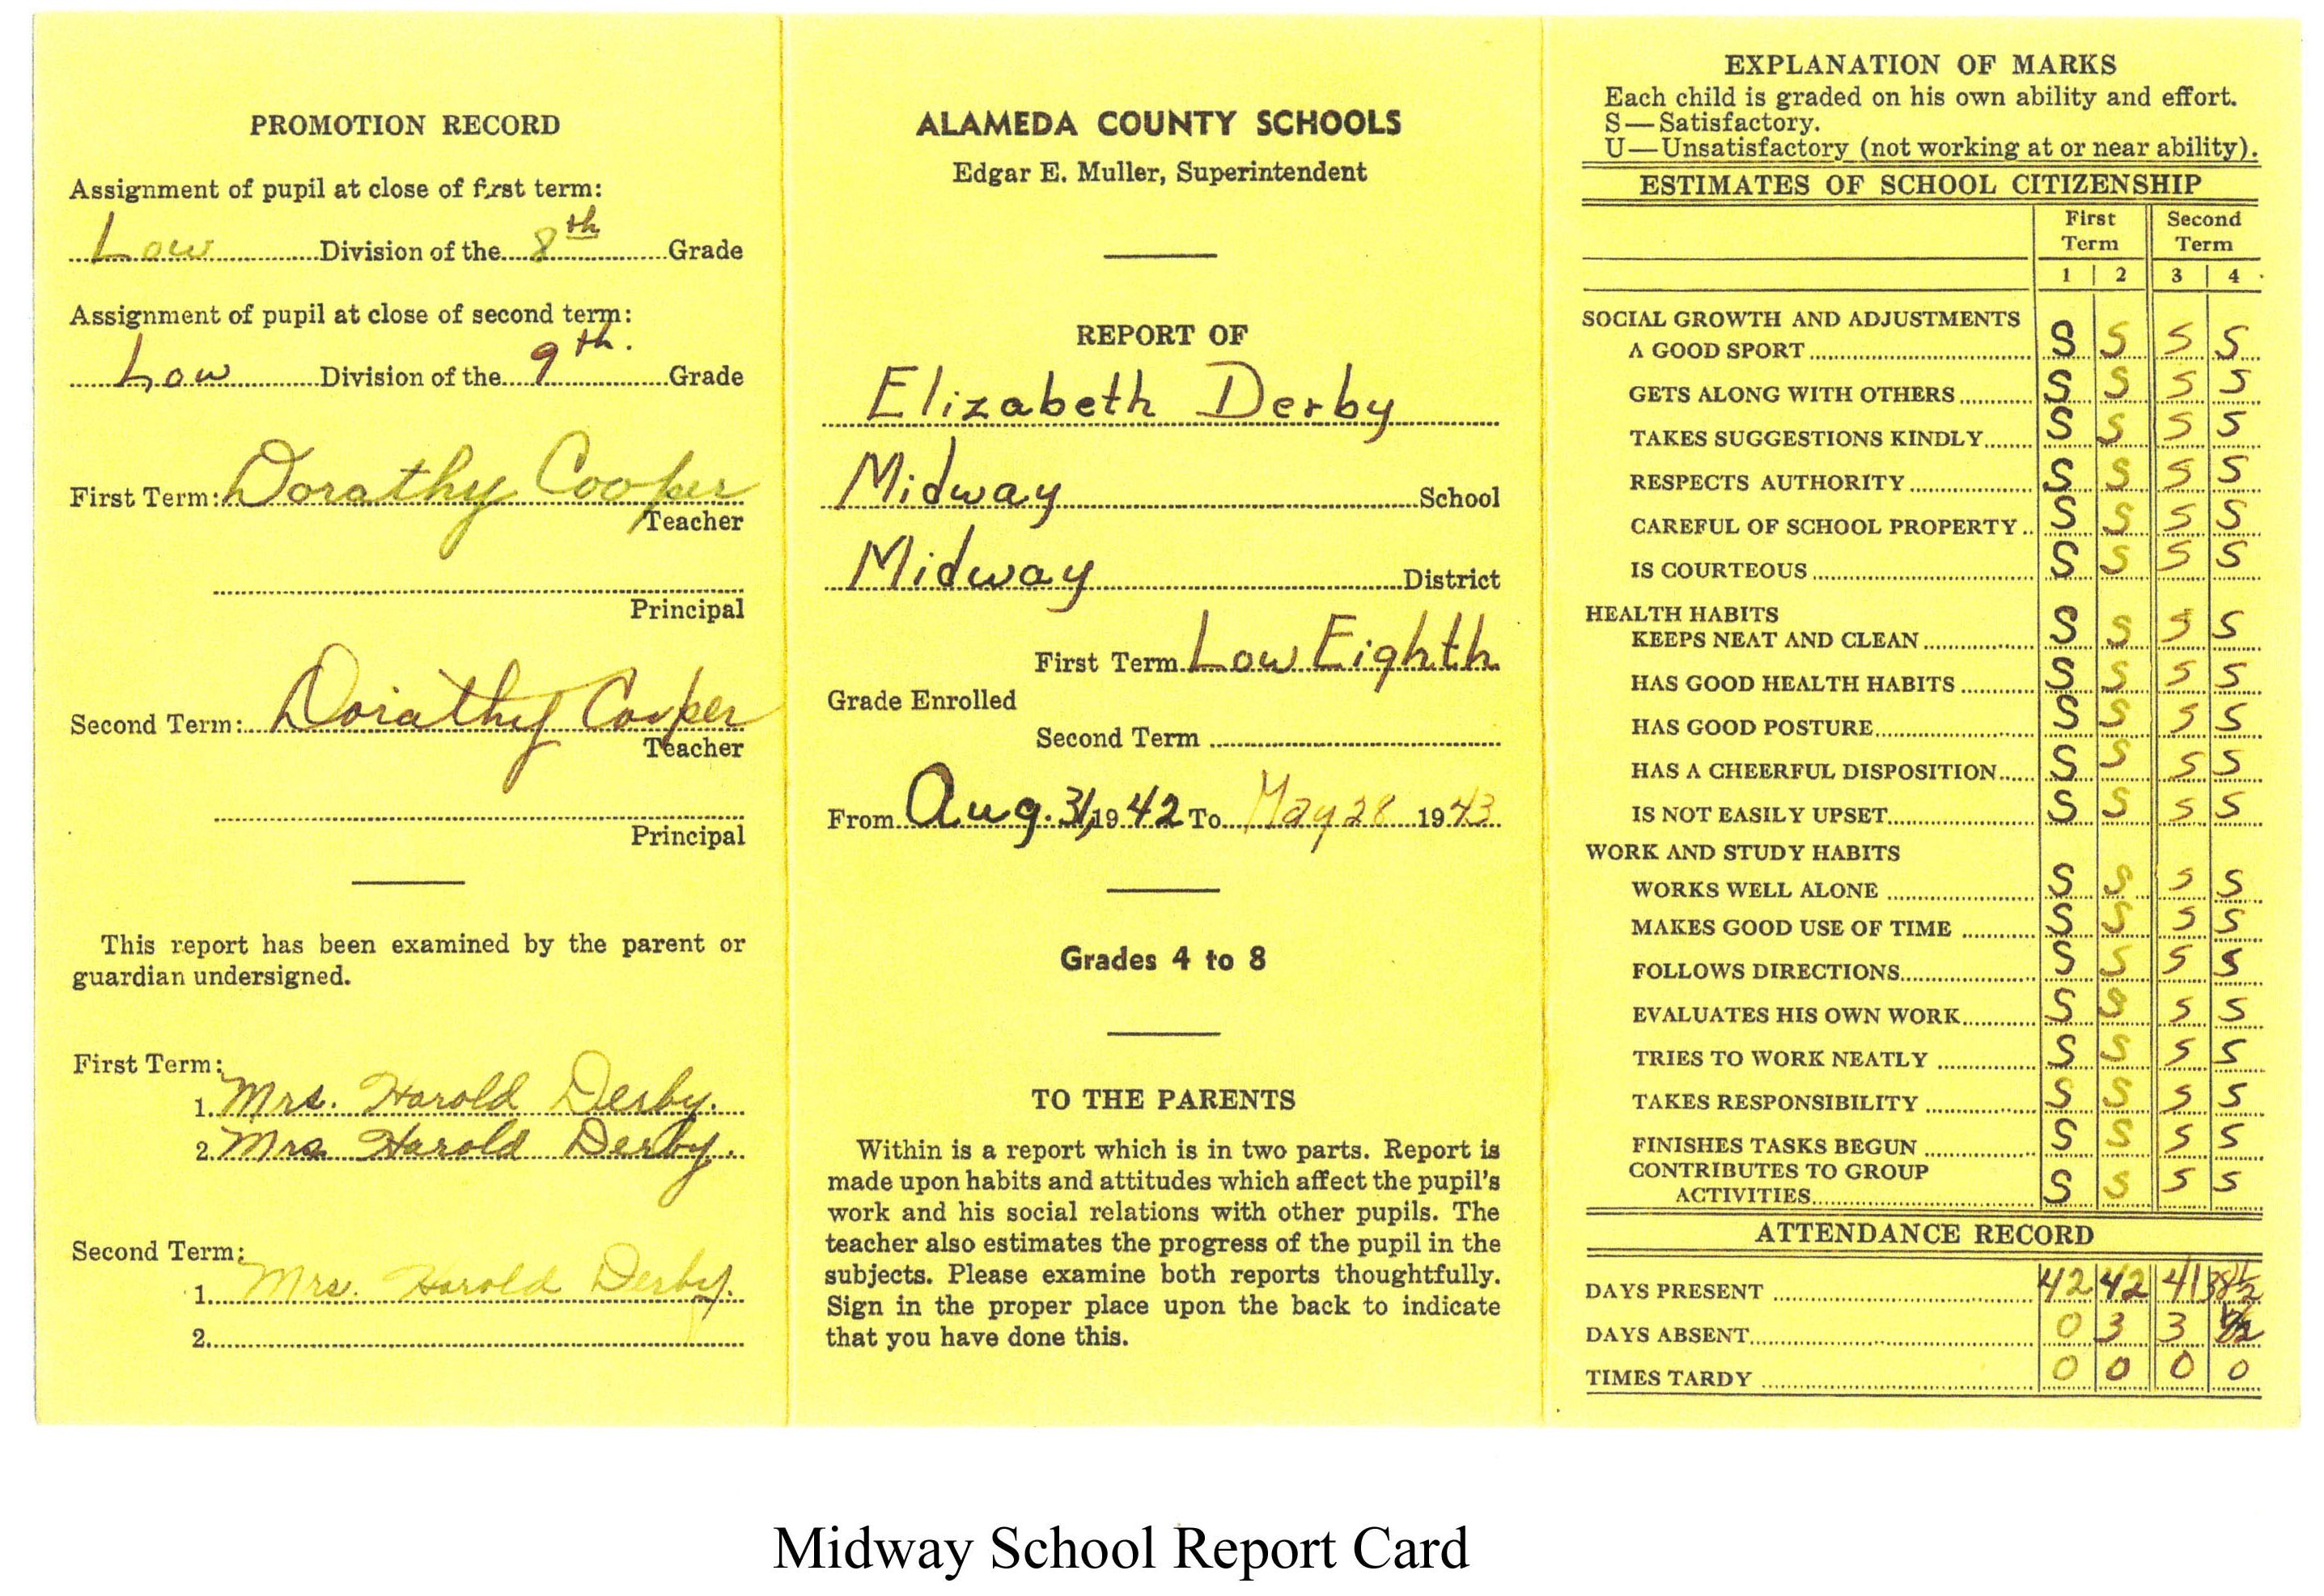 PROMOTION RECORD
Assignment of pupil at close of first term:
Low Division of the 8th Grade
Assignment of pupil at close of second term:
Low Division of the 9th. Grade
First Term: Dorathy Cooper
Teacher
Principal
Second Term: Dorathy Cooper
Teacher
Principal
This report has been examined by the parent or
guardian undersigned.
First Term:
1. Mrs. Harold Derby.
2. Mrs Harold Derby.
Second Term:
1. Mrs. Harold Derby.
2.
ALAMEDA COUNTY SCHOOLS
Edgar E. Muller, Superintendent
REPORT OF
Elizabeth Derby
Midway School
Midway District
First Term Low Eighth
Grade Enrolled
Second Term
From Aug. 31, 1942 To May 28 1943
Grades 4 to 8
TO THE PARENTS
Within is a report which is in two parts. Report is
made upon habits and attitudes which affect the pupil's
work and his social relations with other pupils. The
teacher also estimates the progress of the pupil in the
subjects. Please examine both reports thoughtfully.
Sign in the proper place upon the back to indicate
that you have done this.
EXPLANATION OF MARKS
Each child is graded on his own ability and effort.
S—Satisfactory.
U—Unsatisfactory (not working at or near ability).
ESTIMATES OF SCHOOL CITIZENSHIP
First Term Second Term
1 2 3 4
SOCIAL GROWTH AND ADJUSTMENTS
A GOOD SPORT S S S S
GETS ALONG WITH OTHERS S S S S
TAKES SUGGESTIONS KINDLY S S S S
RESPECTS AUTHORITY S S S S
CAREFUL OF SCHOOL PROPERTY S S S S
IS COURTEOUS S S S S
HEALTH HABITS
KEEPS NEAT AND CLEAN S S S S
HAS GOOD HEALTH HABITS S S S S
HAS GOOD POSTURE S S S S
HAS A CHEERFUL DISPOSITION S S S S
IS NOT EASILY UPSET S S S S
WORK AND STUDY HABITS
WORKS WELL ALONE S S S S
MAKES GOOD USE OF TIME S S S S
FOLLOWS DIRECTIONS S S S S
EVALUATES HIS OWN WORK S S S S
TRIES TO WORK NEATLY S S S S
TAKES RESPONSIBILITY S S S S
FINISHES TASKS BEGUN S S S S
CONTRIBUTES TO GROUP
ACTIVITIES S S S S
ATTENDANCE RECORD
DAYS PRESENT 42 42 41 38½
DAYS ABSENT 0 3 3
TIMES TARDY 0 0 0 0
Midway School Report Card